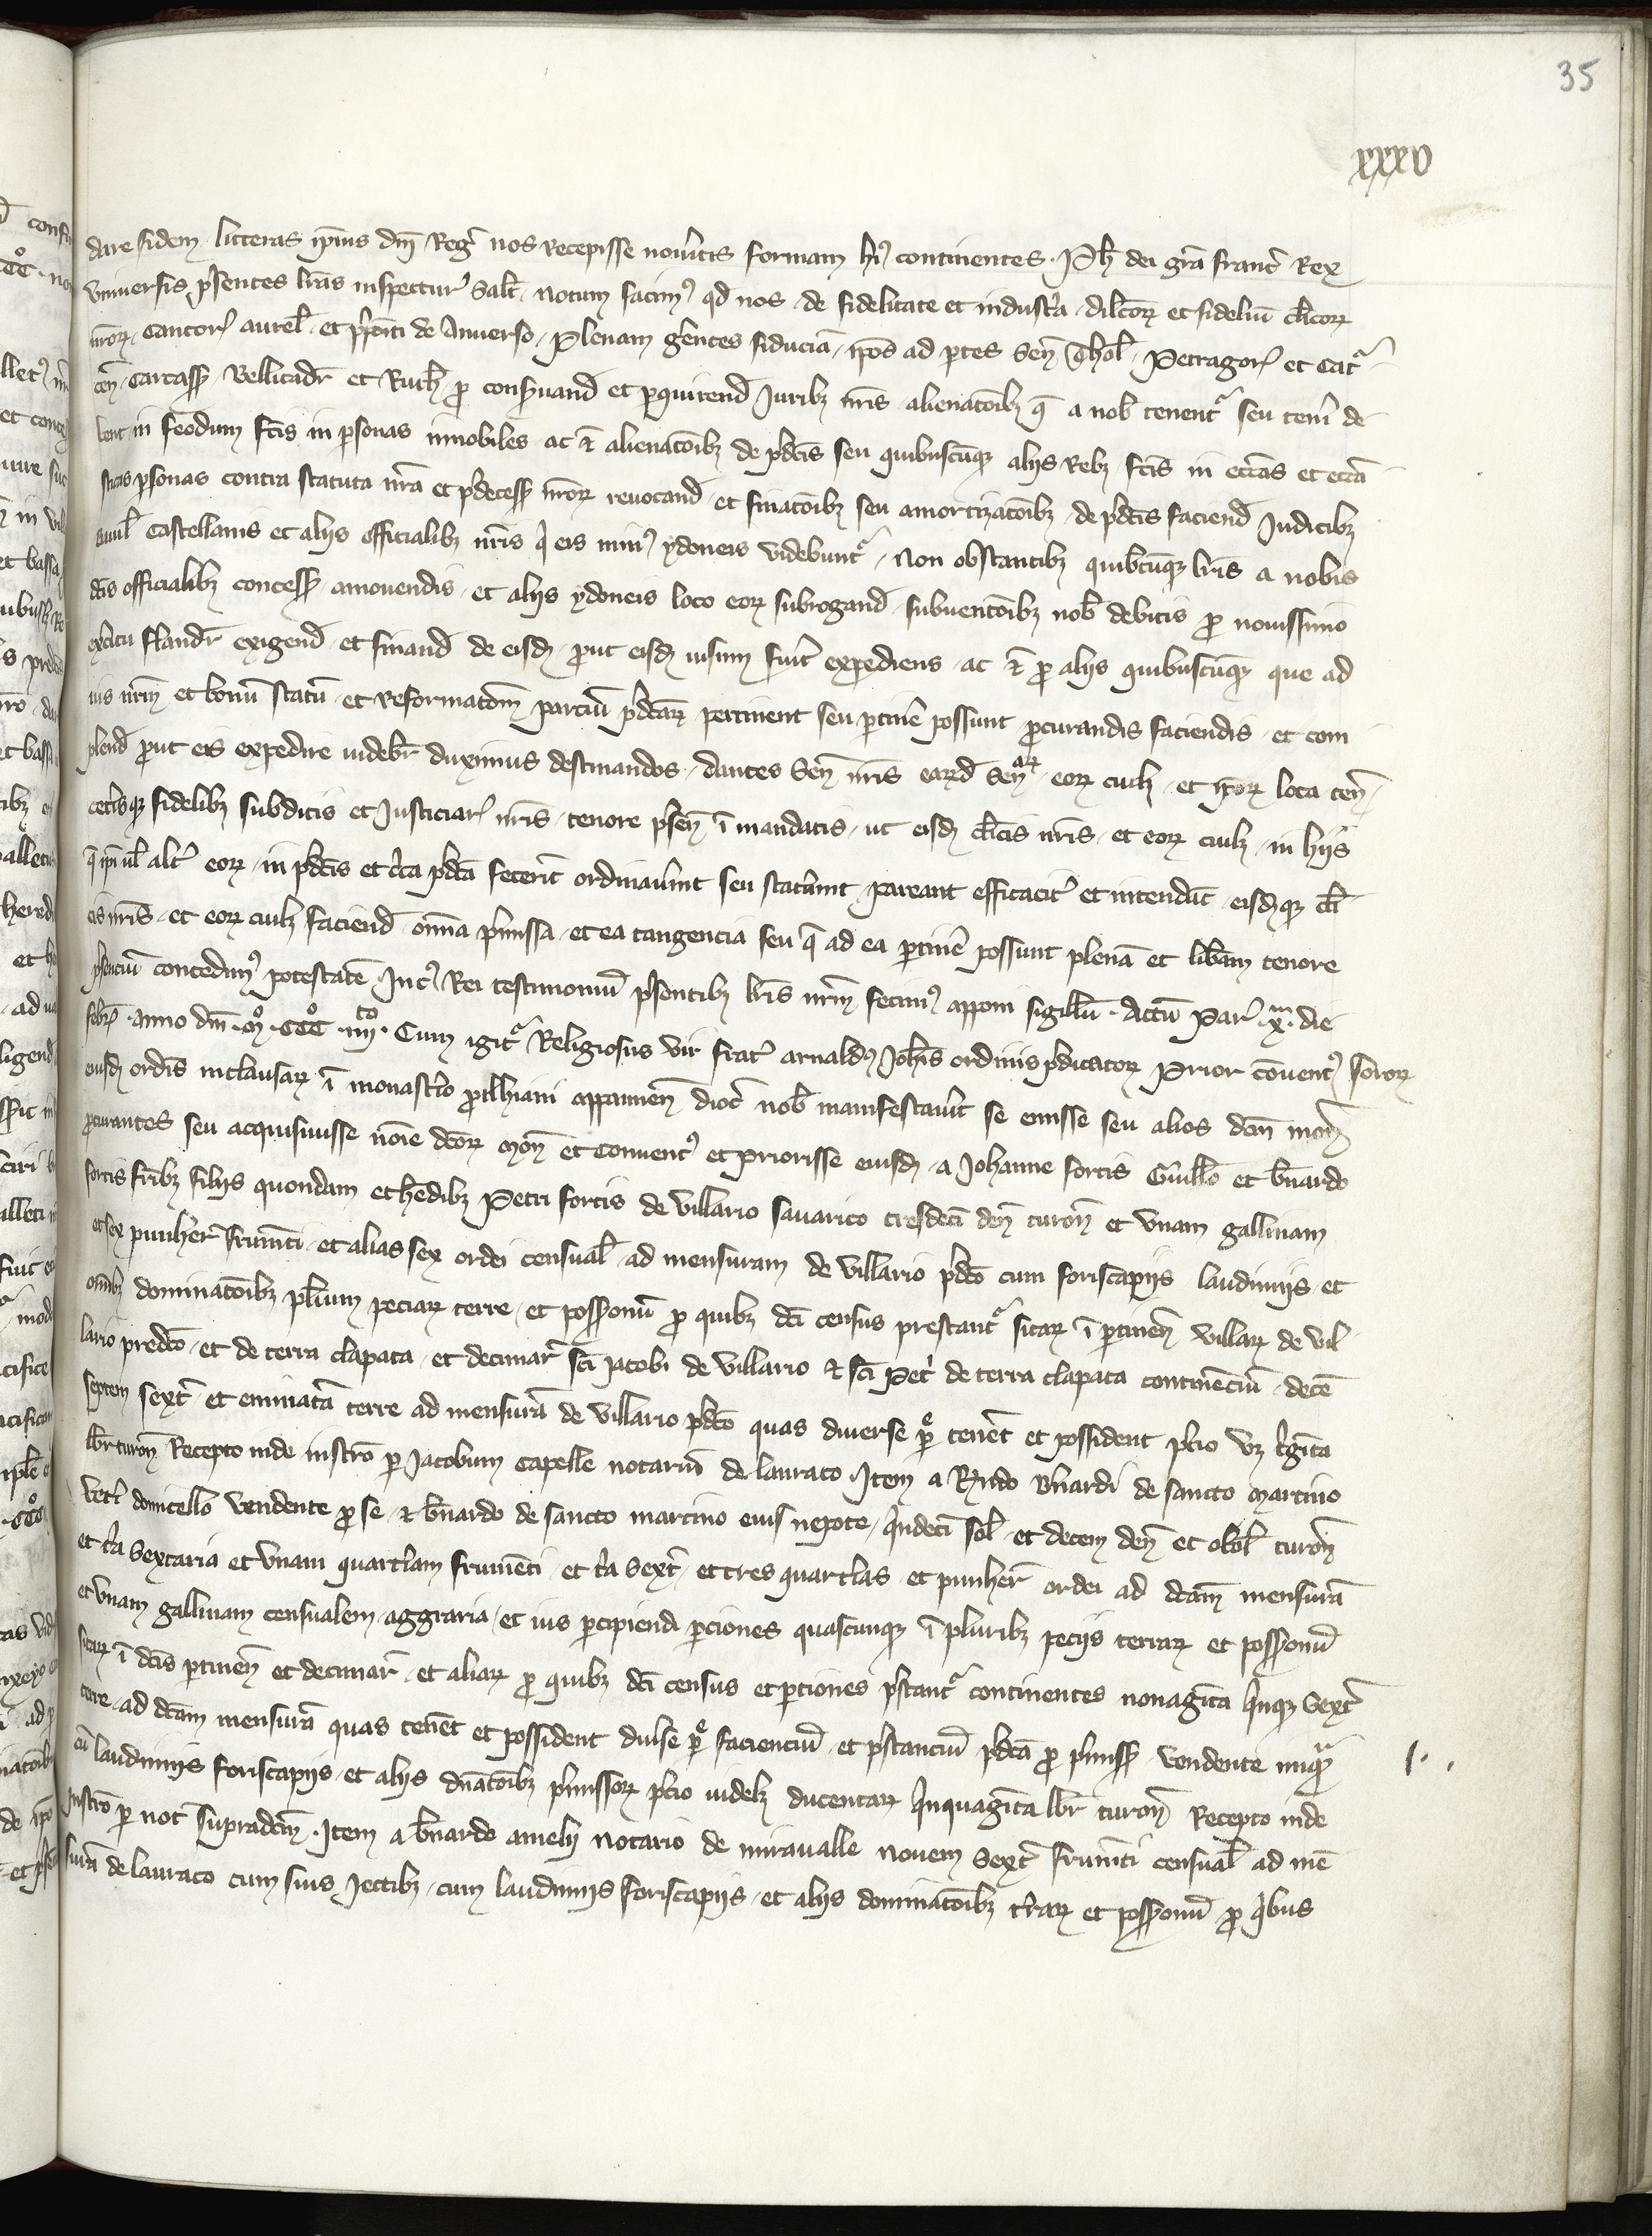 35
xxxv
dare fidem litteras ipius dni Reg nos recepisse noūitis formam h9 continentes . Ph dei gra franc Rex
Vniuersis p̄sentes lras inspectur Salt . Notum facim9 qd nos de fidelitate et industria dilcor et fidelium clicor
nror Cantor aurel et ppoiti de Anuerso plenam gerentes fiducia ipos ad partes Sen Thol Petragor et Cat
cen Carcass Bellicadr et Ruth pro conseruand et perquirend Juribz nris alienacoibz q a nob tenent seu teneri de
bent in feodum fcis in personas innobiles ac et alienacoibz de pdcis seu quibuscuqz alijs rebz fcis in eccias et eccia
sticas personas contra statuta nra et pdecess nror reuocand et finacoibz seu amortizacoibz de pdcis faciend Judicibz
Castellanis et alijs officialibz nris qi eis min9 ydoneis videbunt Non obstantibz quibuscuqz lris a nobis
dcis officialibz concess amouendis et alijs ydoneis loco eor subrogand subuencoibz nob debitis pro nouissimo
exercitu flandr exigend et finand de eisd prout eisd uisum fuit expediens ac et pro alijs quibuscuqz que ad
ius nrm et bonu statu et reformacom parciu pdcar pertinent seu pertine possunt procurandis faciendis et com
plend prout eis expedire uidebr duximus destinandos dantes Sen nris eard Sen ar eor cuilz et ipor loca ten
ceterisqz fidelibz subditis et Justiciar nris tenore psen i mandatis ut eisd clicis nris et eor cuilz in hijs
q ipi ul alt eor in pdcis et circa pdca fecerit ordinauint seu statuint pareant efficacit et intendat eisdqz cli
cis nris et eor cuilz faciend omia pmissa et ea tangencia seu q ad ea pertine possunt plena et libam tenore
psenciu concedim9 potestate Jn c9 Rei testimoniu psentibz lris nrm fecim9 apponi sigillu . Actu Par x a die
febr anno dni mo ccco iiiito . Cum igit Religiosus vir frat arnald9 Johis ordinis pdicator Prior couent9 soror
eiusd ordis inclausar i monastio plhiani appamien dioc nob manifestauit se emisse seu alios dcm mon
procurantes seu acquisiuisse noie dcor mon et conuent9 et priorisse eiusd a Johanne fortis Guillo et bnardo
fortis fribz filijs quondam et hedibz Petri fortis de villario sauarico tresdeci den turon et vnam gallinam
et sex punher frumti et alias sex ordei censual ad mensuram de villario pdco cum foriscapijs laudimijs et
oibz dominacoibz plium peciar terre et possonu pro quibz dci census prestant sitar i pertinen villar de vil
lario predco et de terra clapata et decimar sci Jacobi de villario et sci Pet de terra clapata continenciu dece
septem sext et eminata terre ad mensura de villario pdco quas diuerse p tenet et possident pcio vz tginta
lbr turon Recepto inde instro per Jacobum Capelle notariu de lauraco . Item a Rmdo Bnardi de sancto martino
veti domicello vendente pro se et bnardo de sancto martino eius nepote qindeci sol et decem den et obol turon
et tia Sextaria et vnam quartiam frumeti et tia Sext et tres quartias et punher ordei ad dcam mensura
et vnam gallinam censualem aggraria et ius percipiendi perciones quascunqz i pluribz pecijs terrar et possonu
sitar i dcis pertinen et decimar et aliar pro quibz dci census et perciones pstant continentes nonaginta qinqz Sext
terre ad dcam mensura quas tenet et possident diuse p facienciu et pstanciu pdca pro pmiss vendente
cu laudimijs foriscapijs et alijs dnacoibz pmissor pcio uidelz ducentar qinquaginta lbr turon Recepto inde
Instro per not supradcm . Item a bnardo amelij notario de miraualle nouem Sext frumti censual ad me
sura de lauraco cum suis Jectibz cum laudimijs foriscapijs et alijs dominacoibz trar et possonu pro qibus